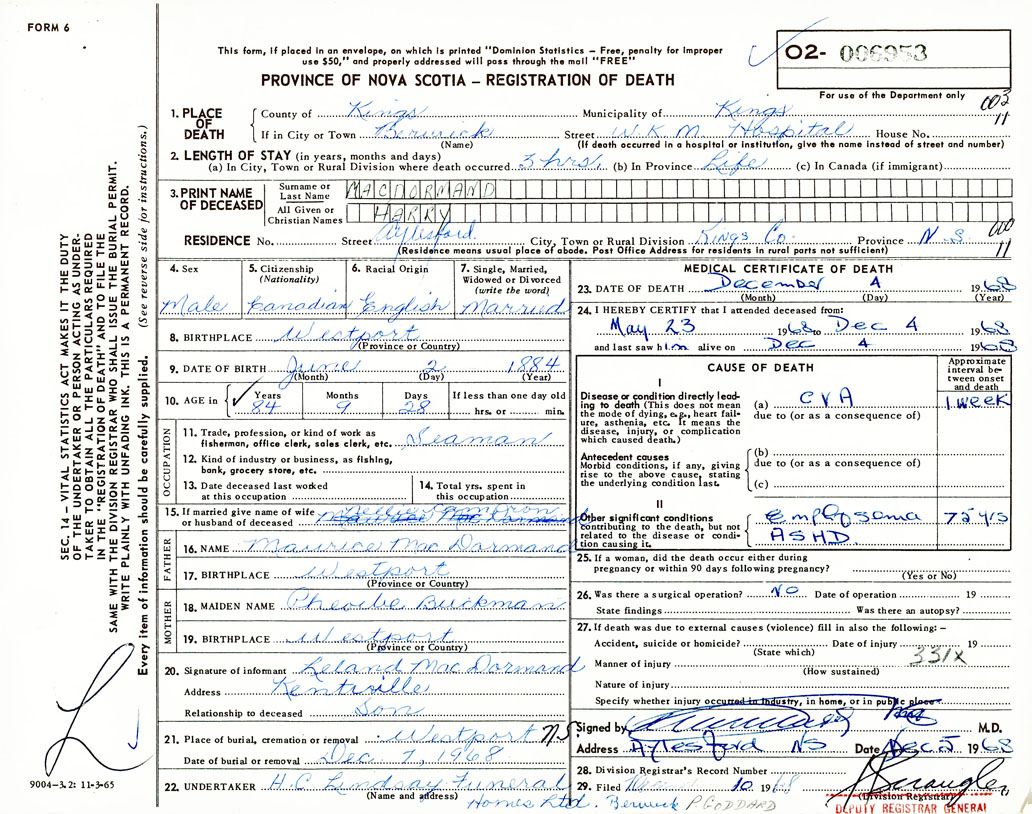 FORM 6
This form, if placed in an envelope, on which is printed "Dominion Statistics – Free, penalty for improper
use $50," and properly addressed will pass through the mail "FREE"
PROVINCE OF NOVA SCOTIA – REGISTRATION OF DEATH
O2- 006953
For use of the Department only
003
11
1. PLACE OF DEATH
County of Kings Municipality of Kings
If in City or Town Berwick Street W.K.M. Hospital House No.
(Name) (If death occurred in a hospital or institution, give the name instead of street and number)
2. LENGTH OF STAY (in years, months and days)
(a) In City, Town or Rural Division where death occurred 3 hrs. (b) In Province Life (c) In Canada (if immigrant)
3. PRINT NAME OF DECEASED
Surname or Last Name MACDORMAND
All Given or Christian Names HARRY
RESIDENCE No. Street Aylesford City, Town or Rural Division Kings Co. Province N.S
(Residence means usual place of abode. Post Office Address for residents in rural parts not sufficient)
11
4. Sex
Male
5. Citizenship
(Nationality)
Canadian
6. Racial Origin
English
7. Single, Married,
Widowed or Divorced
(write the word)
Married
8. BIRTHPLACE Westport
(Province or Country)
9. DATE OF BIRTH June 2 1884
(Month) (Day) (Year)
10. AGE in ✓ Years Months Days If less than one day old
84 9 28 hrs. or min.
OCCUPATION
11. Trade, profession, or kind of work as
fisherman, office clerk, sales clerk, etc. Seaman
12. Kind of industry or business, as fishing,
bank, grocery store, etc.
13. Date deceased last worked
at this occupation
14. Total yrs. spent in
this occupation
15. If married give name of wife
or husband of deceased Nellie Cameron
FATHER
16. NAME Maurice Mac Dormand
17. BIRTHPLACE Westport
(Province or Country)
MOTHER
18. MAIDEN NAME Pheoibe Buckman
19. BIRTHPLACE Westport
(Province or Country)
20. Signature of informant Leland Mac Dormand
Address Kentville
Relationship to deceased Son
21. Place of burial, cremation or removal Westport N.S.
Date of burial or removal Dec 7, 1968
22. UNDERTAKER H.C. Lindsay Funeral
(Name and address)
Homes Ltd. Berwick P. GODDARD
MEDICAL CERTIFICATE OF DEATH
23. DATE OF DEATH December 4 1968
(Month) (Day) (Year)
24. I HEREBY CERTIFY that I attended deceased from:
May 23 1968 to Dec 4 1968
and last saw him alive on Dec 4 1968
CAUSE OF DEATH
Approximate
interval be-
tween onset
and death
I
Disease or condition directly lead-
ing to death (This does not mean
the mode of dying, e.g., heart fail-
ure, asthenia, etc. It means the
disease, injury, or complication
which caused death.)
(a) CVA 1 week
due to (or as a consequence of)
Antecedent causes
Morbid conditions, if any, giving
rise to the above cause, stating
the underlying condition last.
(b)
due to (or as a consequence of)
(c)
II
Other significant conditions
contributing to the death, but not
related to the disease or condi-
tion causing it.
Emphysema
ASHD
25. If a woman, did the death occur either during
pregnancy or within 90 days following pregnancy?
(Yes or No)
26. Was there a surgical operation? NO Date of operation 19
State findings Was there an autopsy?
27. If death was due to external causes (violence) fill in also the following: –
Accident, suicide or homicide? Date of injury 19
(State which)
331X
Manner of injury
(How sustained)
Nature of injury
Specify whether injury occurred in industry, in home, or in public place
Signed by M.D.
Address Aylesford NS Date Dec 5 1968
28. Division Registrar's Record Number
29. Filed 10 1968
(Division Registrar)
DEPUTY REGISTRAR GENERAL
SEC. 14 – VITAL STATISTICS ACT MAKES IT THE DUTY
OF THE UNDERTAKER OR PERSON ACTING AS UNDER-
TAKER TO OBTAIN ALL THE PARTICULARS REQUIRED
IN THE "REGISTRATION OF DEATH" AND TO FILE THE
SAME WITH THE DIVISION REGISTRAR WHO SHALL ISSUE THE BURIAL PERMIT.
WRITE PLAINLY WITH UNFADING INK. THIS IS A PERMANENT RECORD.
Every item of information should be carefully supplied. (See reverse side for instructions.)
9004–3.2: 11-3-65